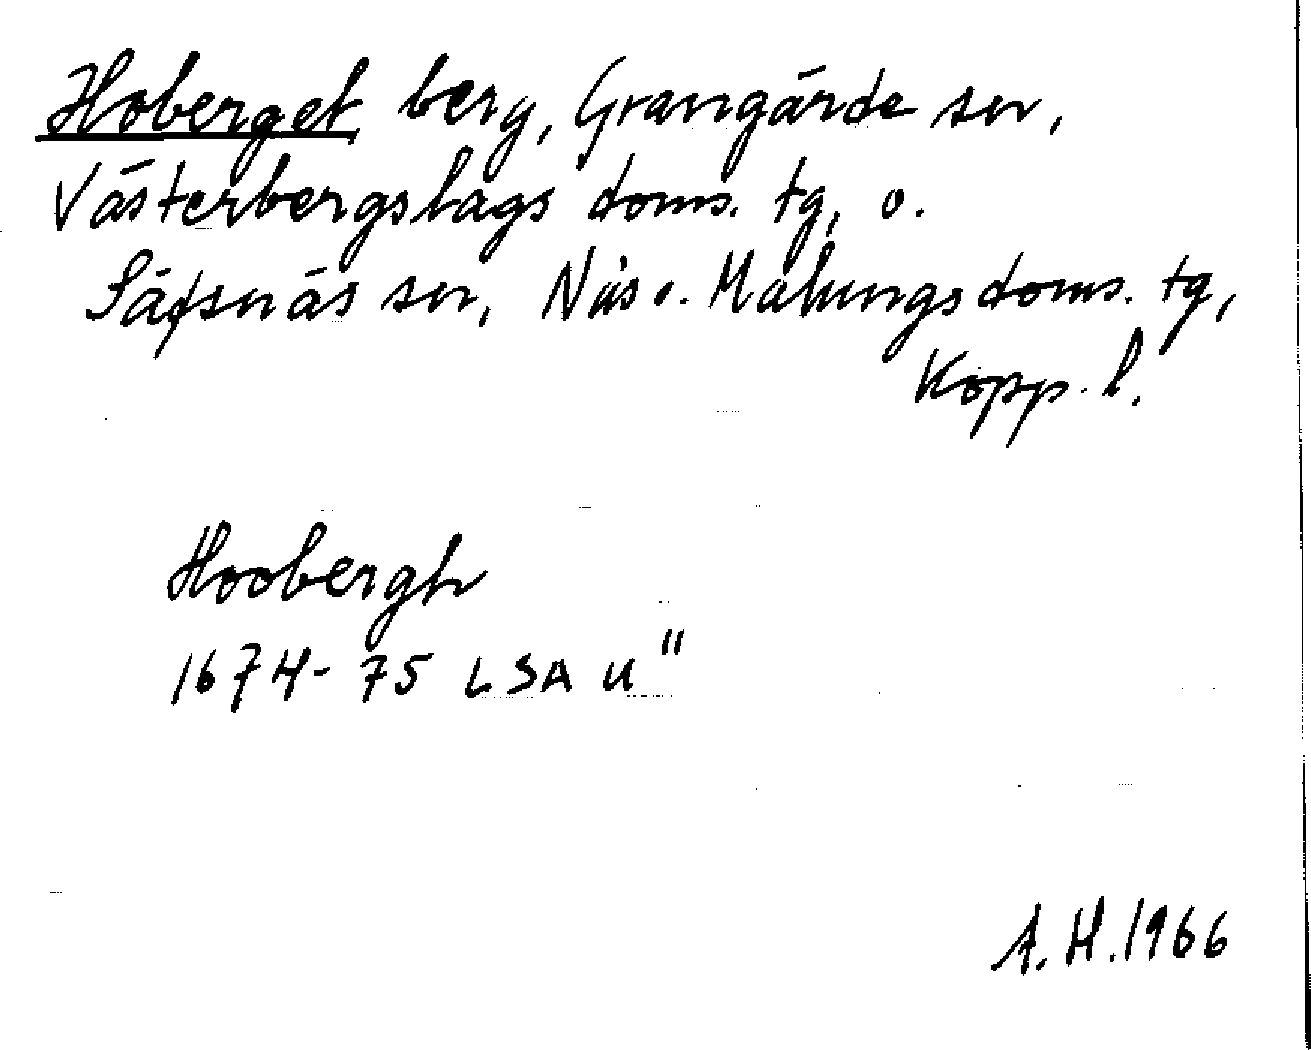 Hoberget, berg, Grangärde sn,
Västerbergslags doms. tg, o.
Säfsnäs sn, Näs o. Malungs doms. tg,
Kopp. l.
Hoobergh
1674-75 LSA U"
A.H.1966